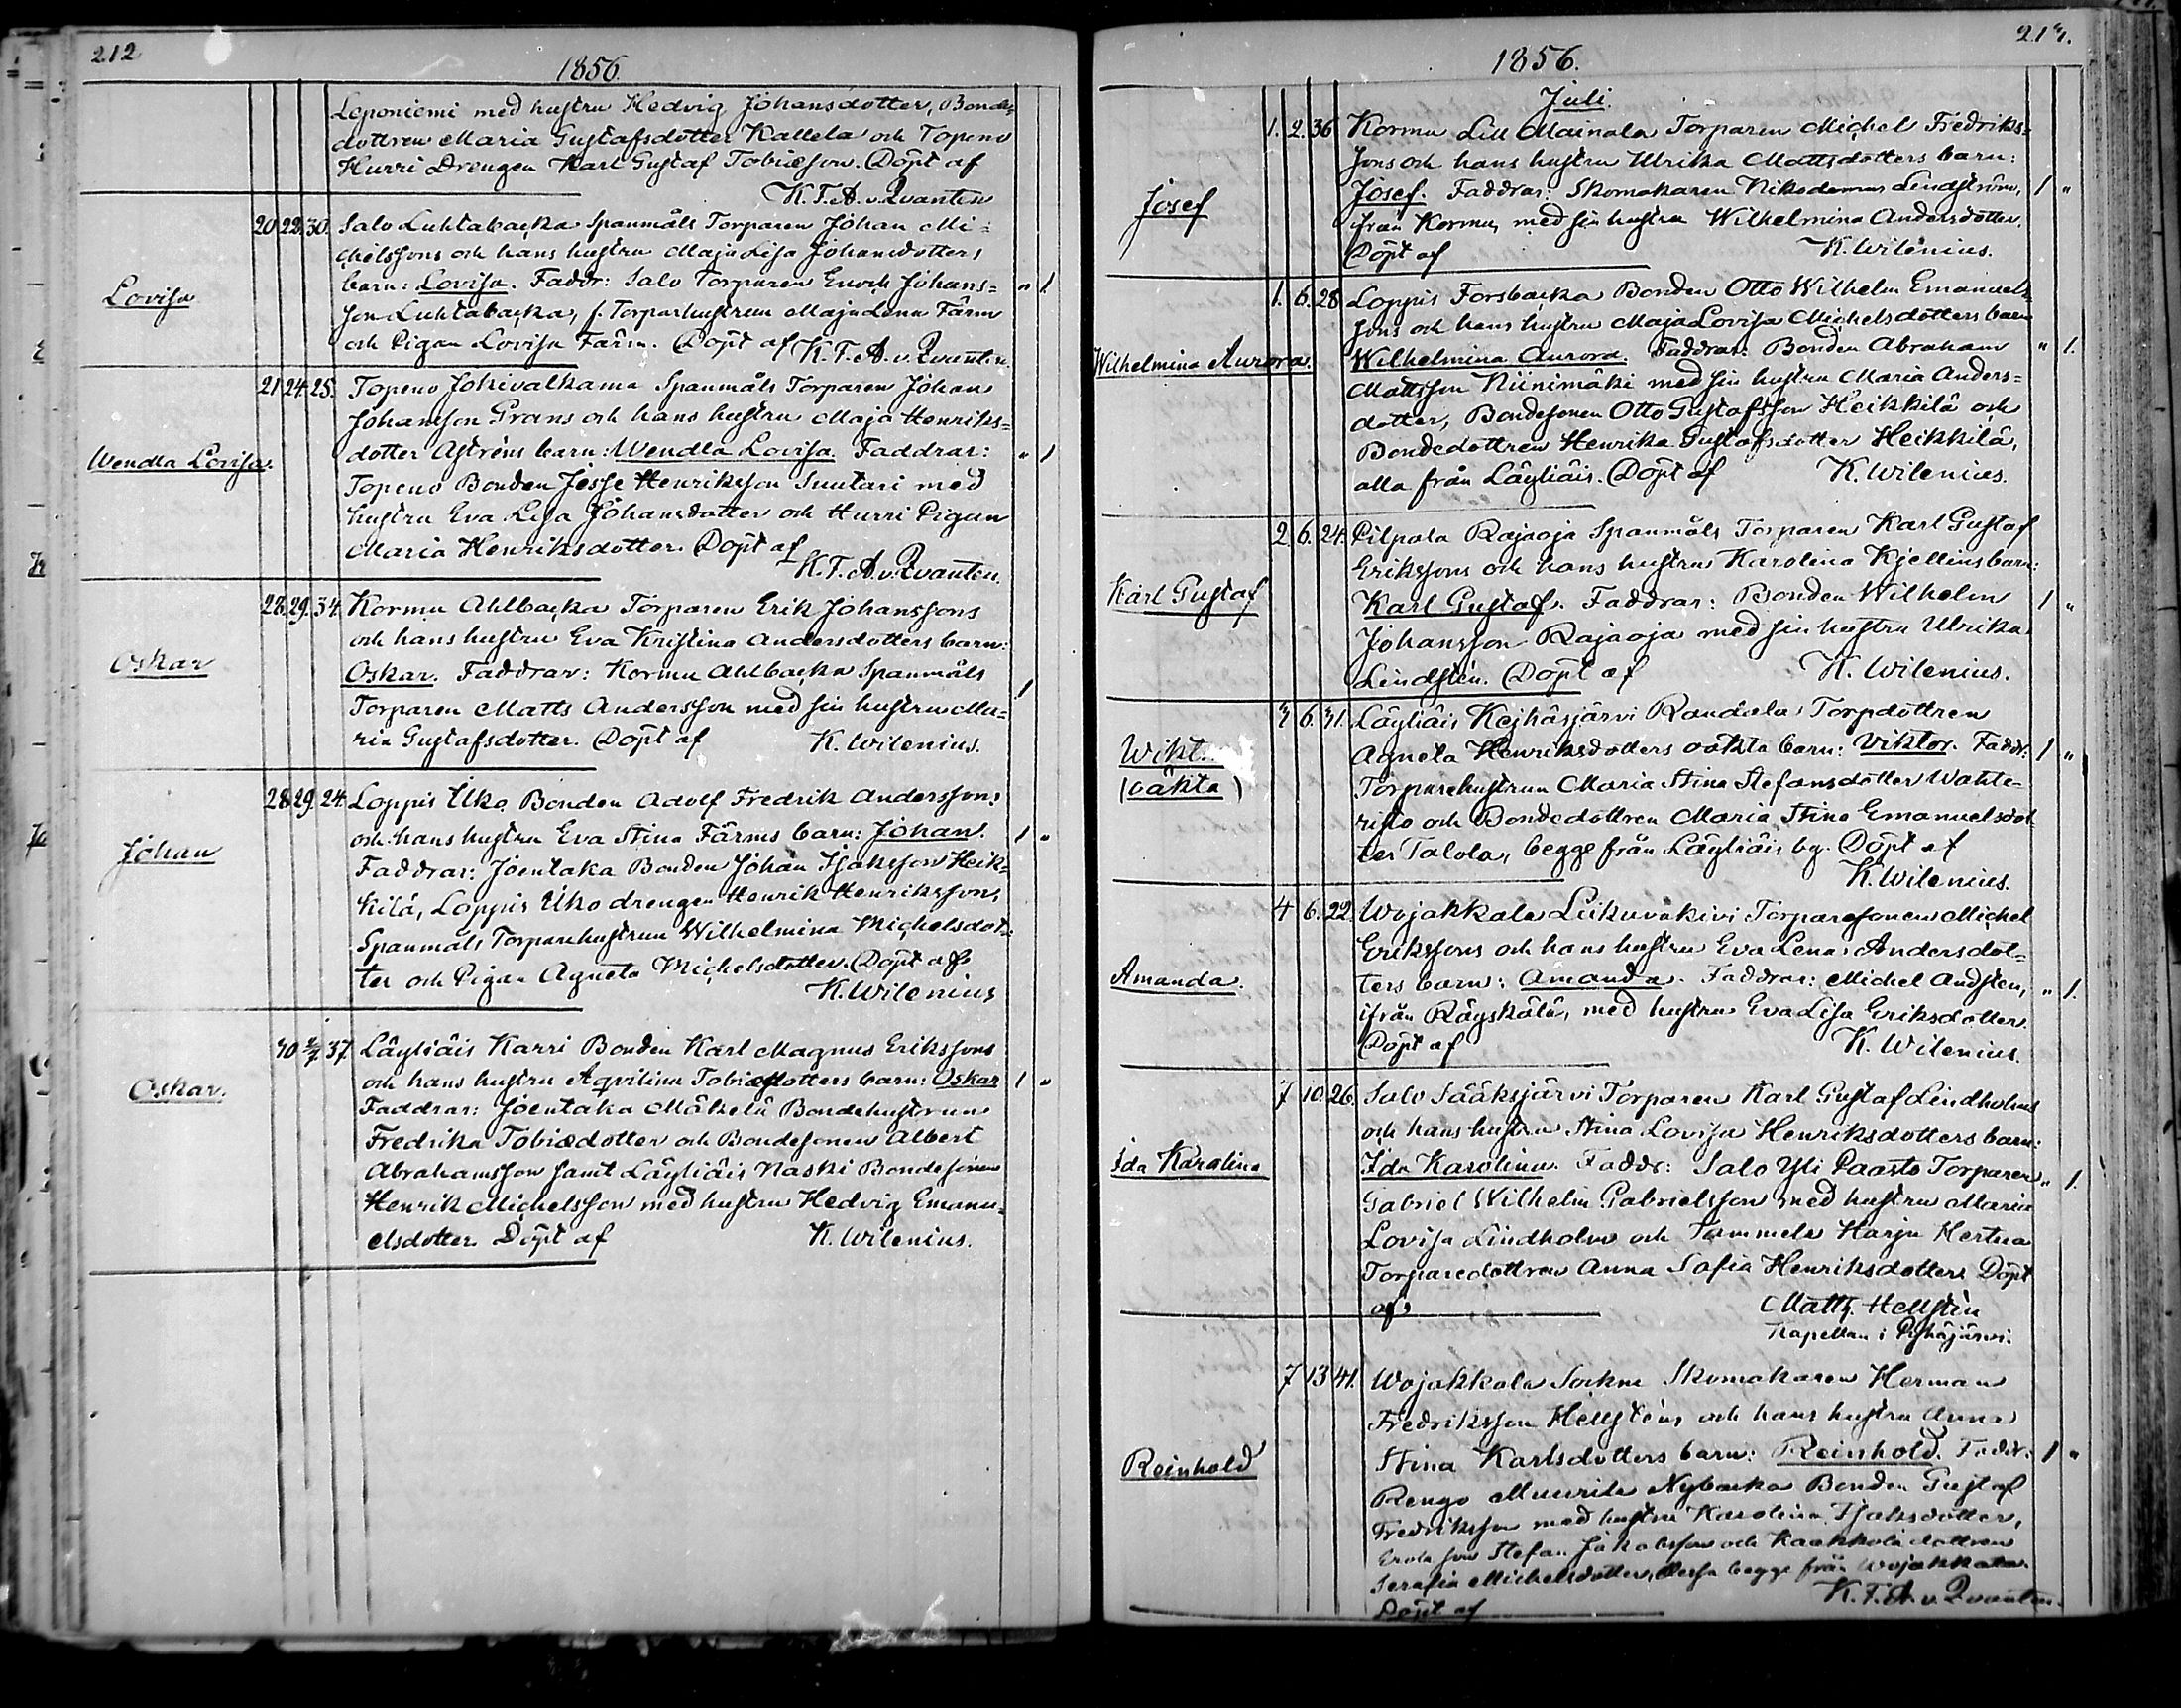 212
1856.
Leponiemi med hustru Hedvig Johansdotter, Bonde=
dottren Maria Gustafsdotter Kallela och Topeno
Hurri Drengen Karl Gustaf Tobiæson. Döpt af
K. F. A. v. Qvanten
Lovisa
20 22. 30. Salo Luhtabacka Spanmåls Torparen Johan Mi=
chelssons och hans hustru Maja Lisa Johansdotters
barn: Lovisa. Faddr: Salo Torparen Enoch Johans= " 1.
son Luhtabacka, s. Torparhustrun Maja Lena Färm
och Pigan Lovisa Färm. Döpt af K. F. A. v. Qvanten.
Wendla Lovisa.
21 24. 25. Topeno Jokivalkama Spanmåls Torparen Johan
Johansson Grans och hans hustru Maja Henriks=
dotter Aströns barn: Wendla Lovisa. Faddrar: " 1
Topeno Bonden Josse Henriksson Suutari med
hustru Eva Lisa Johansdotter och Hurri Pigan
Maria Henriksdotter. Döpt af
K. F. A. v. Qvanten.
Oskar
28. 29. 34. Kormu Ahlbacka Torparen Erik Johanssons
och hans hustru Eva Kristina Andersdotters barn:
Oskar. Faddrar: Kormu Ahlbacka Spanmåls
Torparen Matts Andersson med sin hustru Ma= 1
ria Gustafsdotter. Döpt af K. Wilenius.
Johan
28 29. 24. Loppis Uko Bonden Adolf Fredrik Anderssons
och hans hustru Eva Stina Färms barn: Johan. 1 "
Faddrar: Joentaka Bonden Johan Isaksson Heik=
kilä, Loppis Uko drengen Henrik Henriksson,
Spanmåls Torparehustrun Wilhelmina Michelsdot=
ter och Pigan Agneta Michelsdotter. Döpt af
K. Wilenius
Oskar.
30 2/7 37 Läyliäis Karri Bonden Karl Magnus Erikssons
och hans hustru Aqvilina Tobiædotters barn: Oskar 1 "
Faddrar: Joentaka Mäkelä Bondehustrun
Fredrika Tobiædotter och Bondesonen Albert
Abrahamsson samt Läyliäis Naski Bondesonen
Henrik Michelsson med hustru Hedvig Emanu=
elsdotter. Döpt af K. Wilenius.
213.
1856.
Juli.
Josef
1. 2. 36 Kormu Lill Mainala Torparen Michel Fredriks=
sons och hans hustru Ulrika Mattsdotters barn:
Josef. Faddrar: Skomakaren Nikodemus Lindström, 1 "
från Kormu, med sin hustru Wilhelmina Andersdotter.
Döpt af K. Wilenius.
Wilhelmina Aurora.
1. 6. 28 Loppis Forsbacka Bonden Otto Wilhelm Emanuels=
sons och hans hustru Maja Lovisa Michelsdotters barn
Wilhelmina Aurora. Faddrar: Bonden Abraham " 1.
Mattsson Niinimäki med sin hustru Maria Anders=
dotter, Bondesonen Otto Gustafsson Heikkilä och
Bondedottren Henrika Gustafsdotter Heikkilä,
alla från Läyliäis. Döpt af K. Wilenius.
Karl Gustaf
2. 6. 24. Pilpala Rajaoja Spanmåls Torparen Karl Gustaf
Erikssons och hans hustru Karolina Kjellins barn:
Karl Gustaf. Faddrar: Bonden Wilhelm 1 "
Johansson Rajaoja med sin hustru Ulrika
Lindstén. Döpt af K. Wilenius.
Wikt
(oäkta)
3 6. 31. Läyliäis Kejhäsjärvi Randala Torpdottren
Agneta Henriksdotters oäkta barn: Viktor. Faddr: 1 "
Torparehustrun Maria Stina Stefansdotter Wahte=
risto och Bondedottren Maria Stina Emanuelsdot
ter Talola, begge från Läyliäis by. Döpt af
K. Wilenius.
Amanda.
4 6. 22 Wojakkala Liikuvakivi Torparesonen Michel
Erikssons och hans hustru Eva Lena Andersdot=
ters barn: Amanda. Faddrar: Michel Andsten, " 1.
ifrån Räyskälä, med hustru Eva Lisa Eriksdotter.
Döpt af K. Wilenius.
Ida Karolina
7 10. 26. Salo Sääksjärvi Torparen Karl Gustaf Lindholms
och hans hustru Stina Lovisa Henriksdotters barn:
Ida Karolina. Faddr: Salo Yli Paasto Torparen " 1.
Gabriel Wilhelm Gabrielsson med hustru Maria
Lovisa Lindholm och Tammela Harju Hertua
Torparedottren Anna Sofia Henriksdotter. Döpt
af Matts. Hellstén
Kapellan i Pyhäjärvi.
Reinhold
7 13 41. Wojakkala Sockne Skomakaren Herman
Fredriksson Hellsténs och hans hustru Anna
Stina Karlsdotters barn: Reinhold. Faddr: 1 "
Rengo Muurila Nybacka Bonden Gustaf
Fredriksson med hustru Karolina Isaksdotter,
Erola son Stefan Jakobsson och Kaakkola dottren
Serafia Michelsdotter, dessa begge från Wojakkala.
Döpt af K. F. A. v. Qvanten.